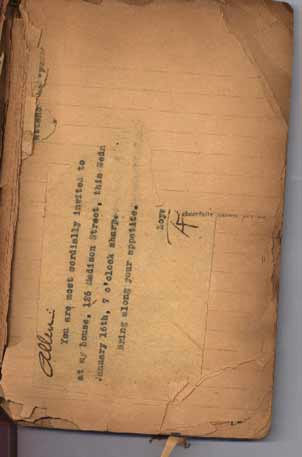 Allen:
You are most cordially invited to
at my house, 126 Madison Street, this Wedn
January 16th, 7 o'clock sharp.
Bring along your appetite.
Loys